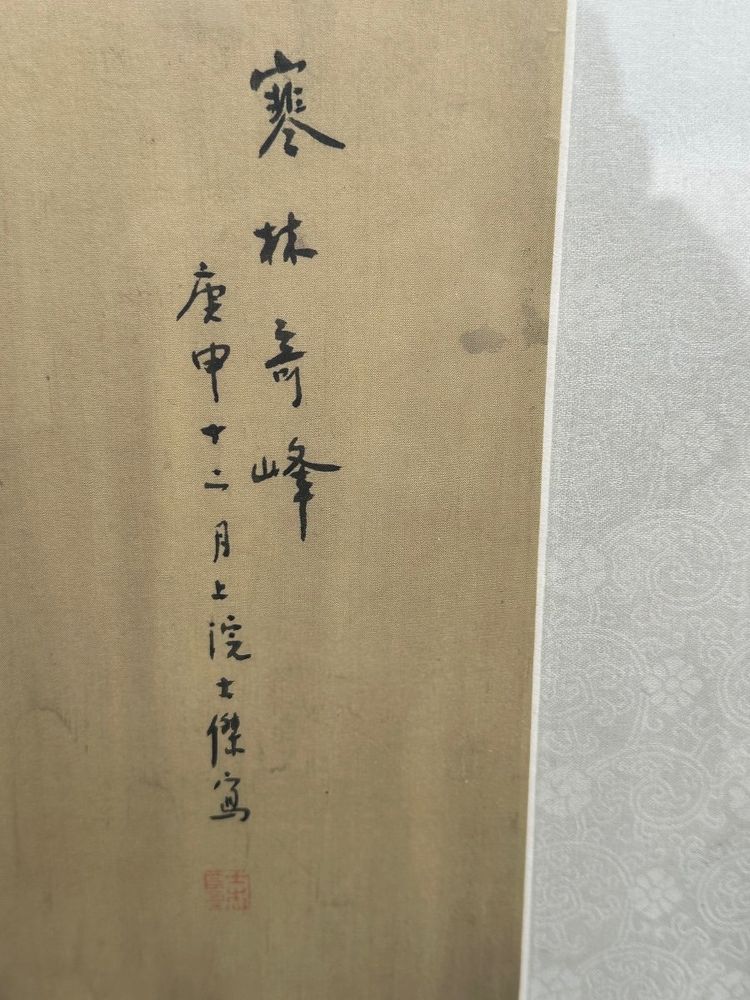 寒林奇峰
庚申十二月上浣士傑寫